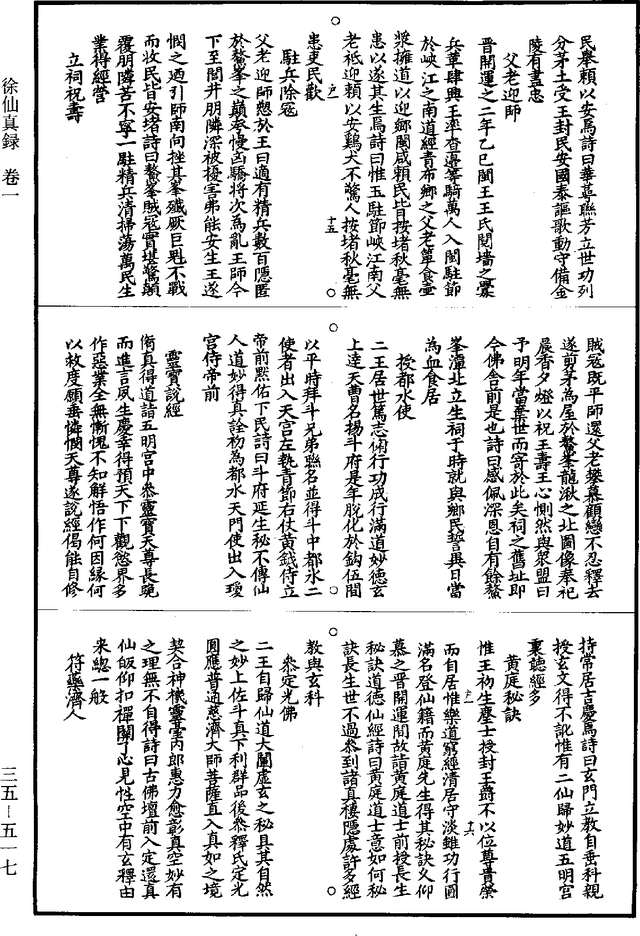 徐仙真録 卷一
三五－五一七
民舉賴以安焉詩曰華萼聯芳立世功列
分茅土受王封民安國泰謳歌動守備金
陵有盡忠
父老迎師
晉開運之二年乙巳閩王王氏鬩墻之釁
兵革肆興王率查邊等騎萬人入閩駐節
於峽江之南道經青布鄉之父老簞食壺
漿擁道以迎鄉閭咸賴民皆按堵秋毫無
患以遂其生焉詩曰惟王駐節峽江南父
老祗迎賴以安鷄犬不驚人按堵秋毫無
患吏民歡
駐兵除冦
父老迎師懇於王曰適有精兵數百隱匿
於鰲峯之巔桀慢凶驕將次為亂王師今
下至閭井朋隣深被擾害弟能安生王遂
憫之迺引師南向挫其峯殲厥巨魁不戰
而收民皆安堵詩曰鰲峯賊冦實堪驚顛
覆朋隣苦不寧一駐精兵清掃蕩萬民生
業得經營
立祠祝壽
賊冦既平師還父老攀慕顧戀不忍釋去
遂剪茅為屋於鰲峯龍湫之北圖像奉祀
晨香夕燈以祝王壽王心惻然與衆盟曰
予明年當棄世而寄於此矣祠之舊址即
今佛舍前是也詩曰感佩深恩自有餘鰲
峯潭北立生祠于時就與鄉民誓異日當
為血食居
授都水使
二王居世篤志脩行功成行滿道妙德玄
上達天曹名揚斗府是年脫化於鈎伍間
以平時拜斗兄弟聯名並得斗中都水二
使者出入天宫左執青節右仗黄鉞侍立
帝前黙佑下民詩曰斗府延生秘不傳仙
人道妙得真詮初為都水天門使出入瓊
宫侍帝前
靈寶說經
衛真得道詣五明宫中叅靈寶天尊長跪
而進言夙生慶幸得預天下下觀慾界多
作惡業全無慚愧不知解悟作何因縁何
以救度願垂憐憫天尊遂說經偈能自修
持常居吉慶焉詩曰玄門立教自垂科親
授玄文得不訛惟有二仙歸妙道五明宫
裏聽經多
黄庭秘訣
惟王初生塵士授封王爵不以位尊貴榮
而自居惟樂道窮經清居守淡雖功行圓
滿名登仙籍而黄庭先生得其秘訣久仰
慕之晉開運間故詣黄庭道士前授長生
秘訣道德仙經詩曰黄庭道士意如何秘
訣長生世不過叅到諸真棲隱處許多經
教與玄科
叅定光佛
二王自歸仙道大闡虚玄之秘具其自然
之妙上佐斗真下利群品後叅釋氏定光
圓應普通慈濟大師菩薩直入真如之境
契合神機靈臺丙郎惠力愈彰真空妙有
之理無不自得詩曰古佛壇前入定還真
仙皈仰扣禪關了心見性空中有玄釋由
來總一般
符藥濟人